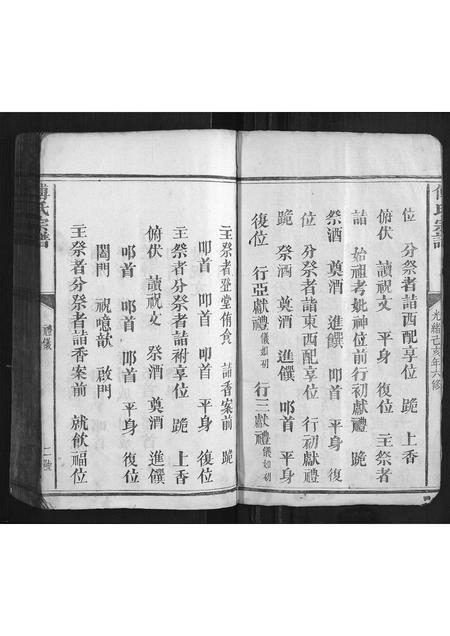 傅氏宗譜
光緒己亥年六修
位 分祭者詣西配享位 跪 上香
俯伏 讀祝文 平身 復位 主祭者
詣 始祖考妣神位前行初獻禮 跪
祭酒 奠酒 進饌 叩首 平身 復
位 分祭者詣東西配享位 行初獻禮
跪 祭酒 奠酒 進饌 叩首 平身
復位 行亞獻禮儀如初 行三獻禮儀如初
主祭者登堂侑食 詣香案前 跪
叩首 叩首 叩首 平身 復位
主祭者分祭者詣祔享位 跪 上香
俯伏 讀祝文 祭酒 奠酒 進饌
叩首 叩首 叩首 平身 復位
闔門 祝噫歆 啟門
主祭者分祭者詣香案前 就飲福位
傅氏宗譜
禮儀
二號